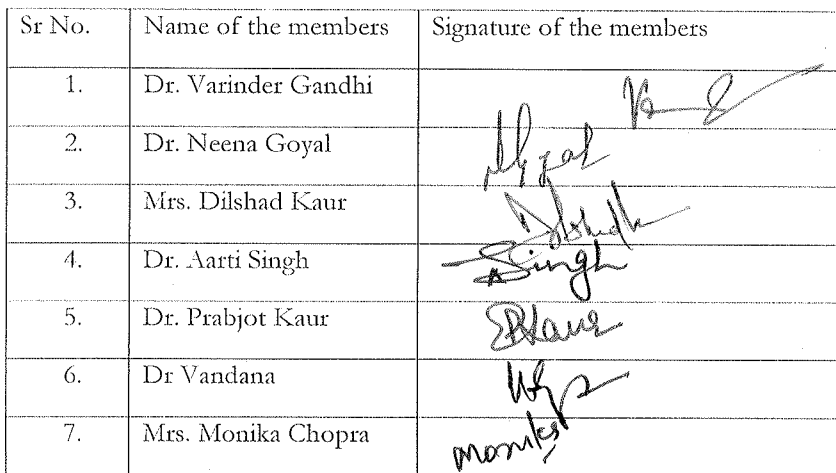 Sr No. Name of the members Signature of the members
1. Dr. Varinder Gandhi
2. Dr. Neena Goyal
3. Mrs. Dilshad Kaur
4. Dr. Aarti Singh Singh
5. Dr. Prabjot Kaur
6. Dr Vandana
7. Mrs. Monika Chopra